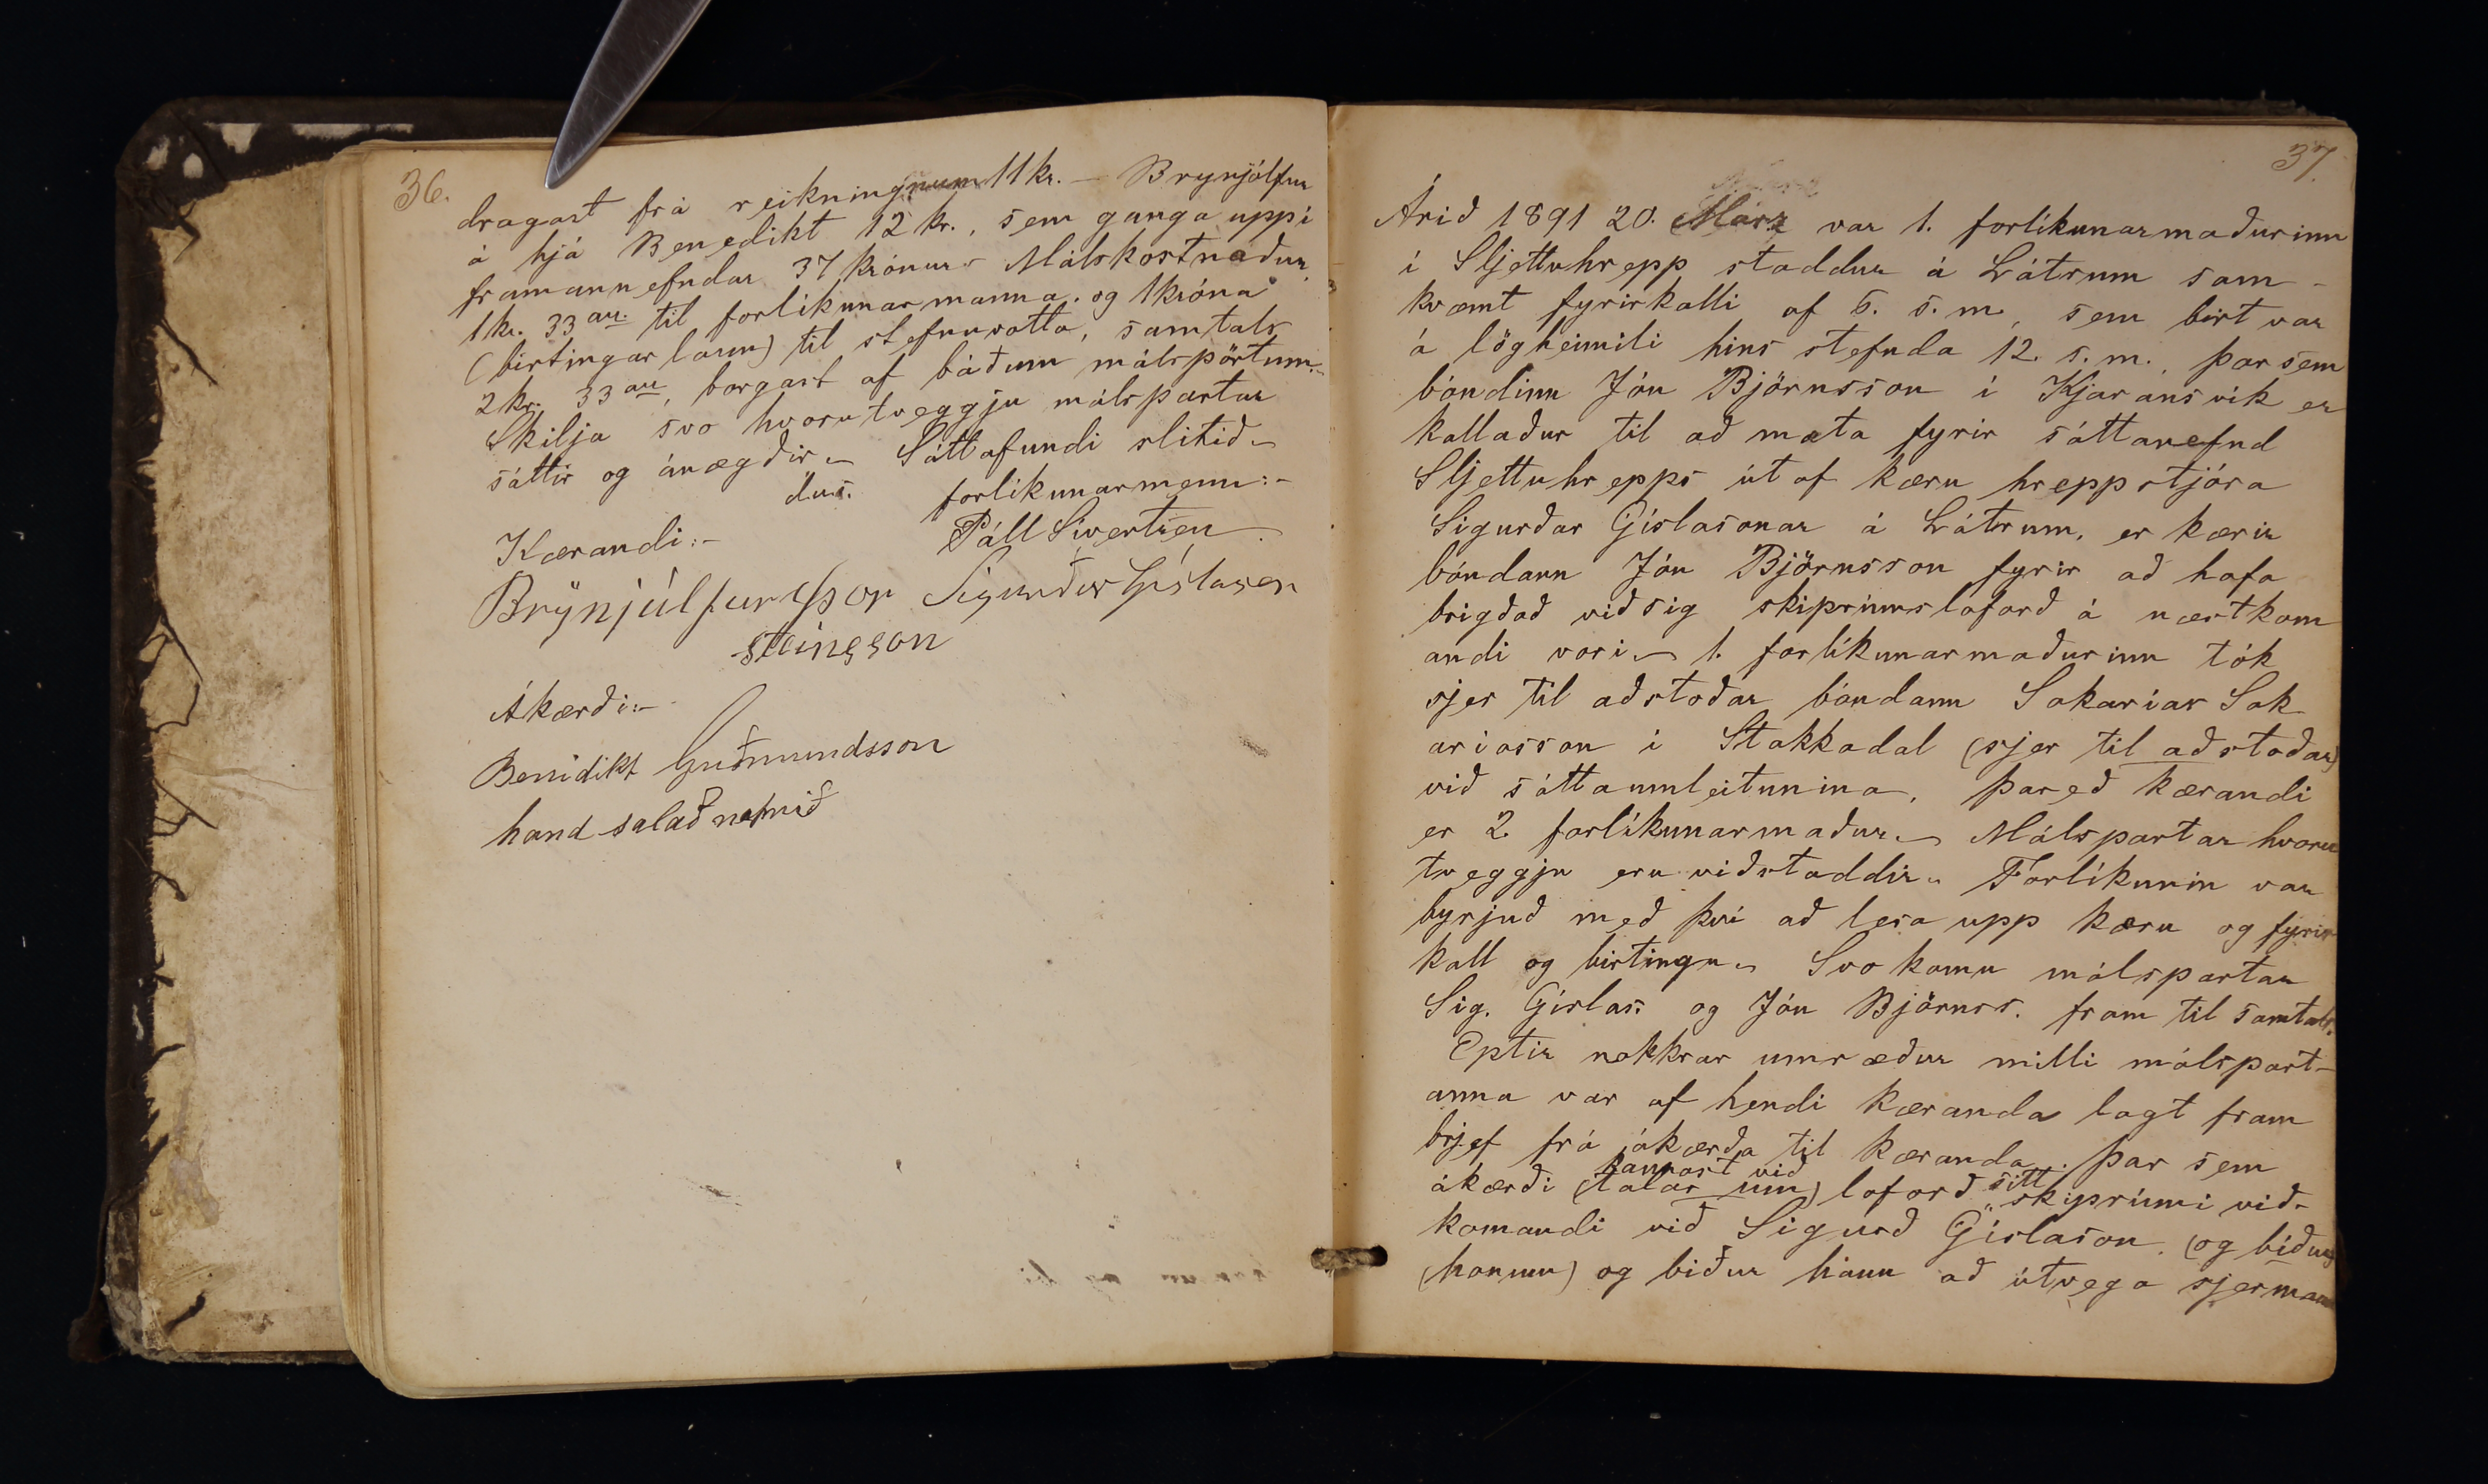 36.
dragast frá reikningnum 11 kr. – Brynjólfur
á hjá Benedikt 12 kr., sem ganga uppí
framannefndar 37 krónur – Málskostnaður
1 kr. 33 au. til forlíkunarmanna og 1 króna
(birtingarlaun) til stefnuvotta, samtals
2 kr. 33 au, borgast af báðum málspörtum. –
Skilja svo hvorutveggju málspartar
sáttir og ánægðir. – Sáttafundi slitið –
d.u.s. forlíkunarmenn: –
Kærandi: – Páll Sivertsen.
Brÿnjúlfur Þor Sigurður Gíslason
steinsson
Ákærði: –
Benidikt Guðmundsson
hand salað nafnið
37.
Árið 1891 20. Marz var 1. forlíkunarmaðurinn
í Sljettuhrepp staddur á Látrum sam-
kvæmt fyrirkalli af 5. s. m., sem birt var
á lögheimili hins stefnda 12. s. m., þar sem
bóndinn Jón Björnsson í Kjaransvík er
kallaður til að mæta fyrir sáttanefnd
Sljettuhrepps út af kæru hreppstjóra
Sigurðar Gíslasonar á Látrum, er kærir
bóndann Jón Björnsson fyrir að hafa
brigðað við sig skiprúmsloforð á næstkom
andi vori. – 1. forlíkunarmaðurinn tók
sjer til aðstoðar bóndann Sakarías Sak
aríasson í Stakkadal (sjer til aðstoðar)
við sáttaumleitunina, þareð kærandi
er 2. forlíkunarmaður. – Málspartar hvoru
tveggju eru viðstaddir. Forlíkunin var
byrjuð með því að lesa upp kæru og fyrir
kall og birtingu. – Svo komu málspartar
Sig. Gíslas. og Jón Björnss. fram til samtals.
Eptir nokkrar umræður milli málspart-
anna var af hendi kæranda lagt fram
brjef frá ákærða til kæranda. Þar sem
kannast við sitt
ákærði (talar um) loforð " skiprúmi við-
komandi við Sigurð Gíslason. (og biður
(honum) og biður hann að útvega sjer mann